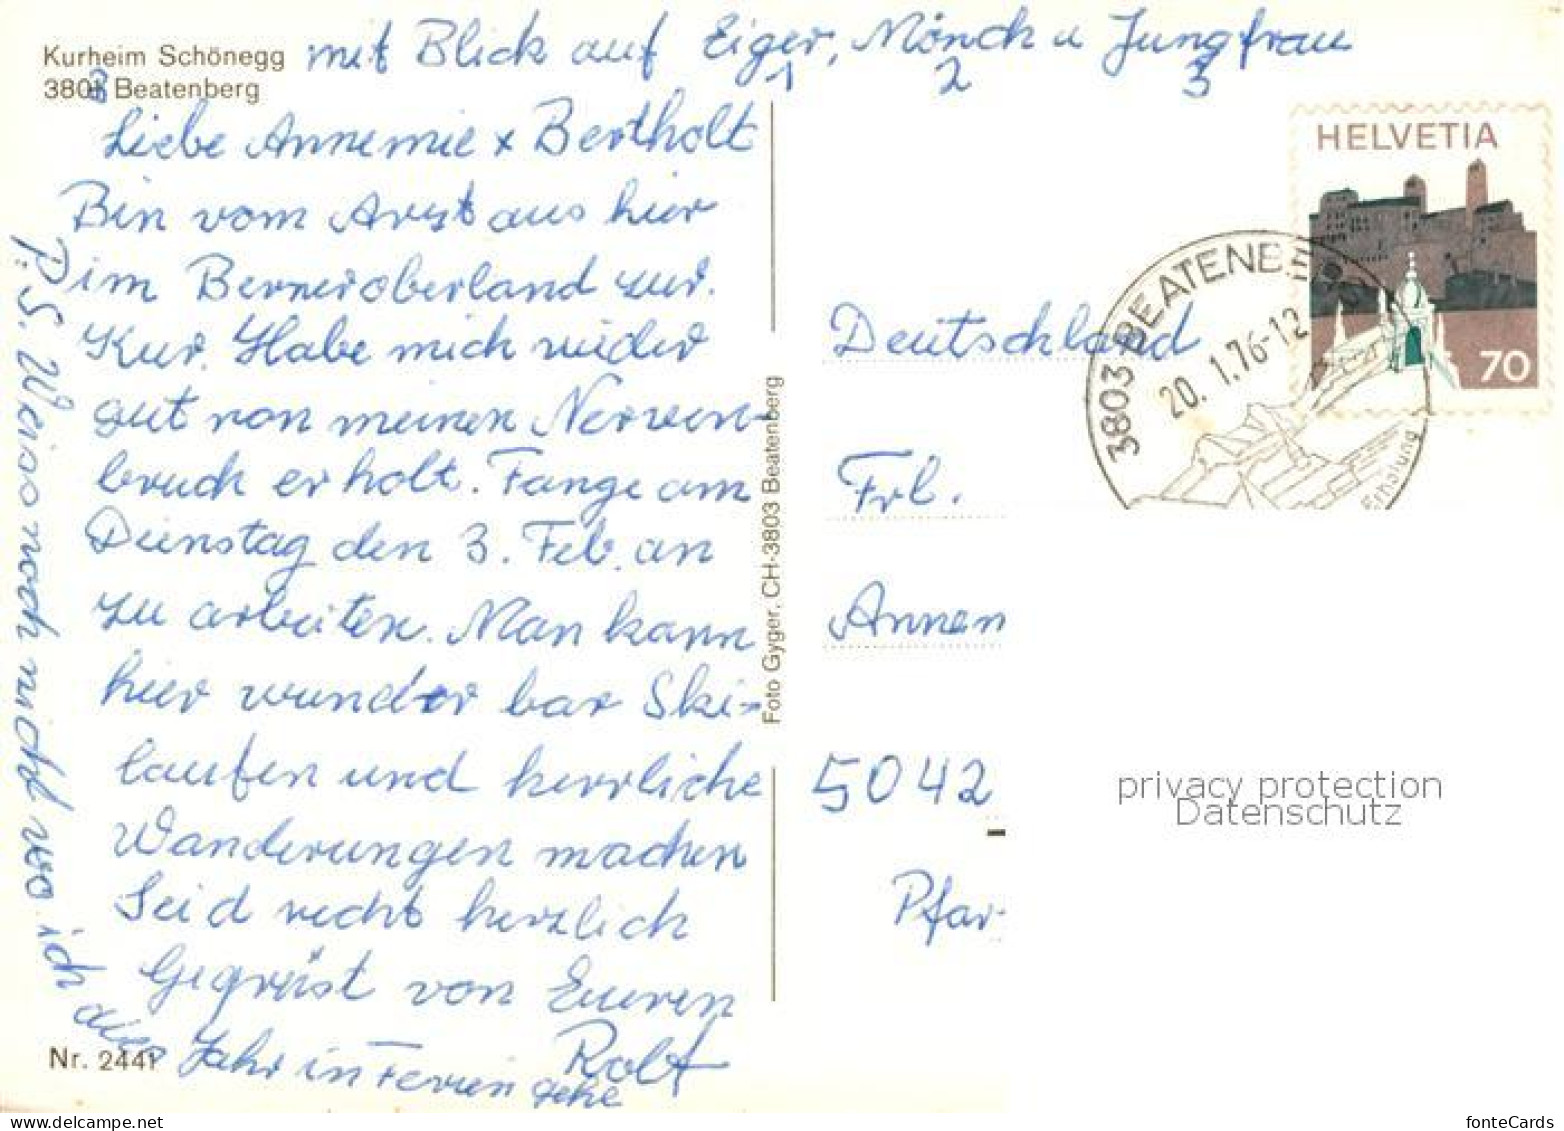 Kurheim Schönegg mit Blick auf Eiger, Mönch u Jungfrau
3803 Beatenberg 1 2 3
Liebe Annemie + Bertholt
Bin vom Arzt aus hier
im Berneroberland zur.
Kur. Habe mich wieder
gut von meinen Nerven-
bruch erholt. Fange am
Dienstag den 3. Feb. an
zu arbeiten. Man kann
hier wunderbar Ski-
laufen und herrliche
Wanderungen machen
Seid recht herzlich
Gegrüst von Euren
Rolf
P.S. Weis noch nicht wo ich
dies Jahr in Ferien gehe
Nr. 2441
Foto Gyger, CH-3803 Beatenberg
HELVETIA
70
3803 BEATENBE
20.1.76-12
Erholung
Deutschland
Frl.
Annem
5042
Pfar
privacy protection
Datenschutz
www.delcampe.net
fonteCards